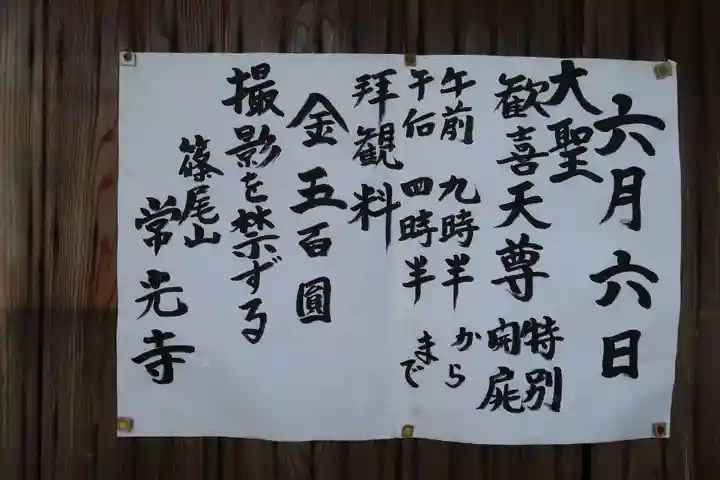 六月六日
大聖
歓喜天尊 特別
開扉
午前 九時半 から
午后 四時半 まで
拝観料
金五百圓
撮影を禁ずる
篠尾山
常光寺